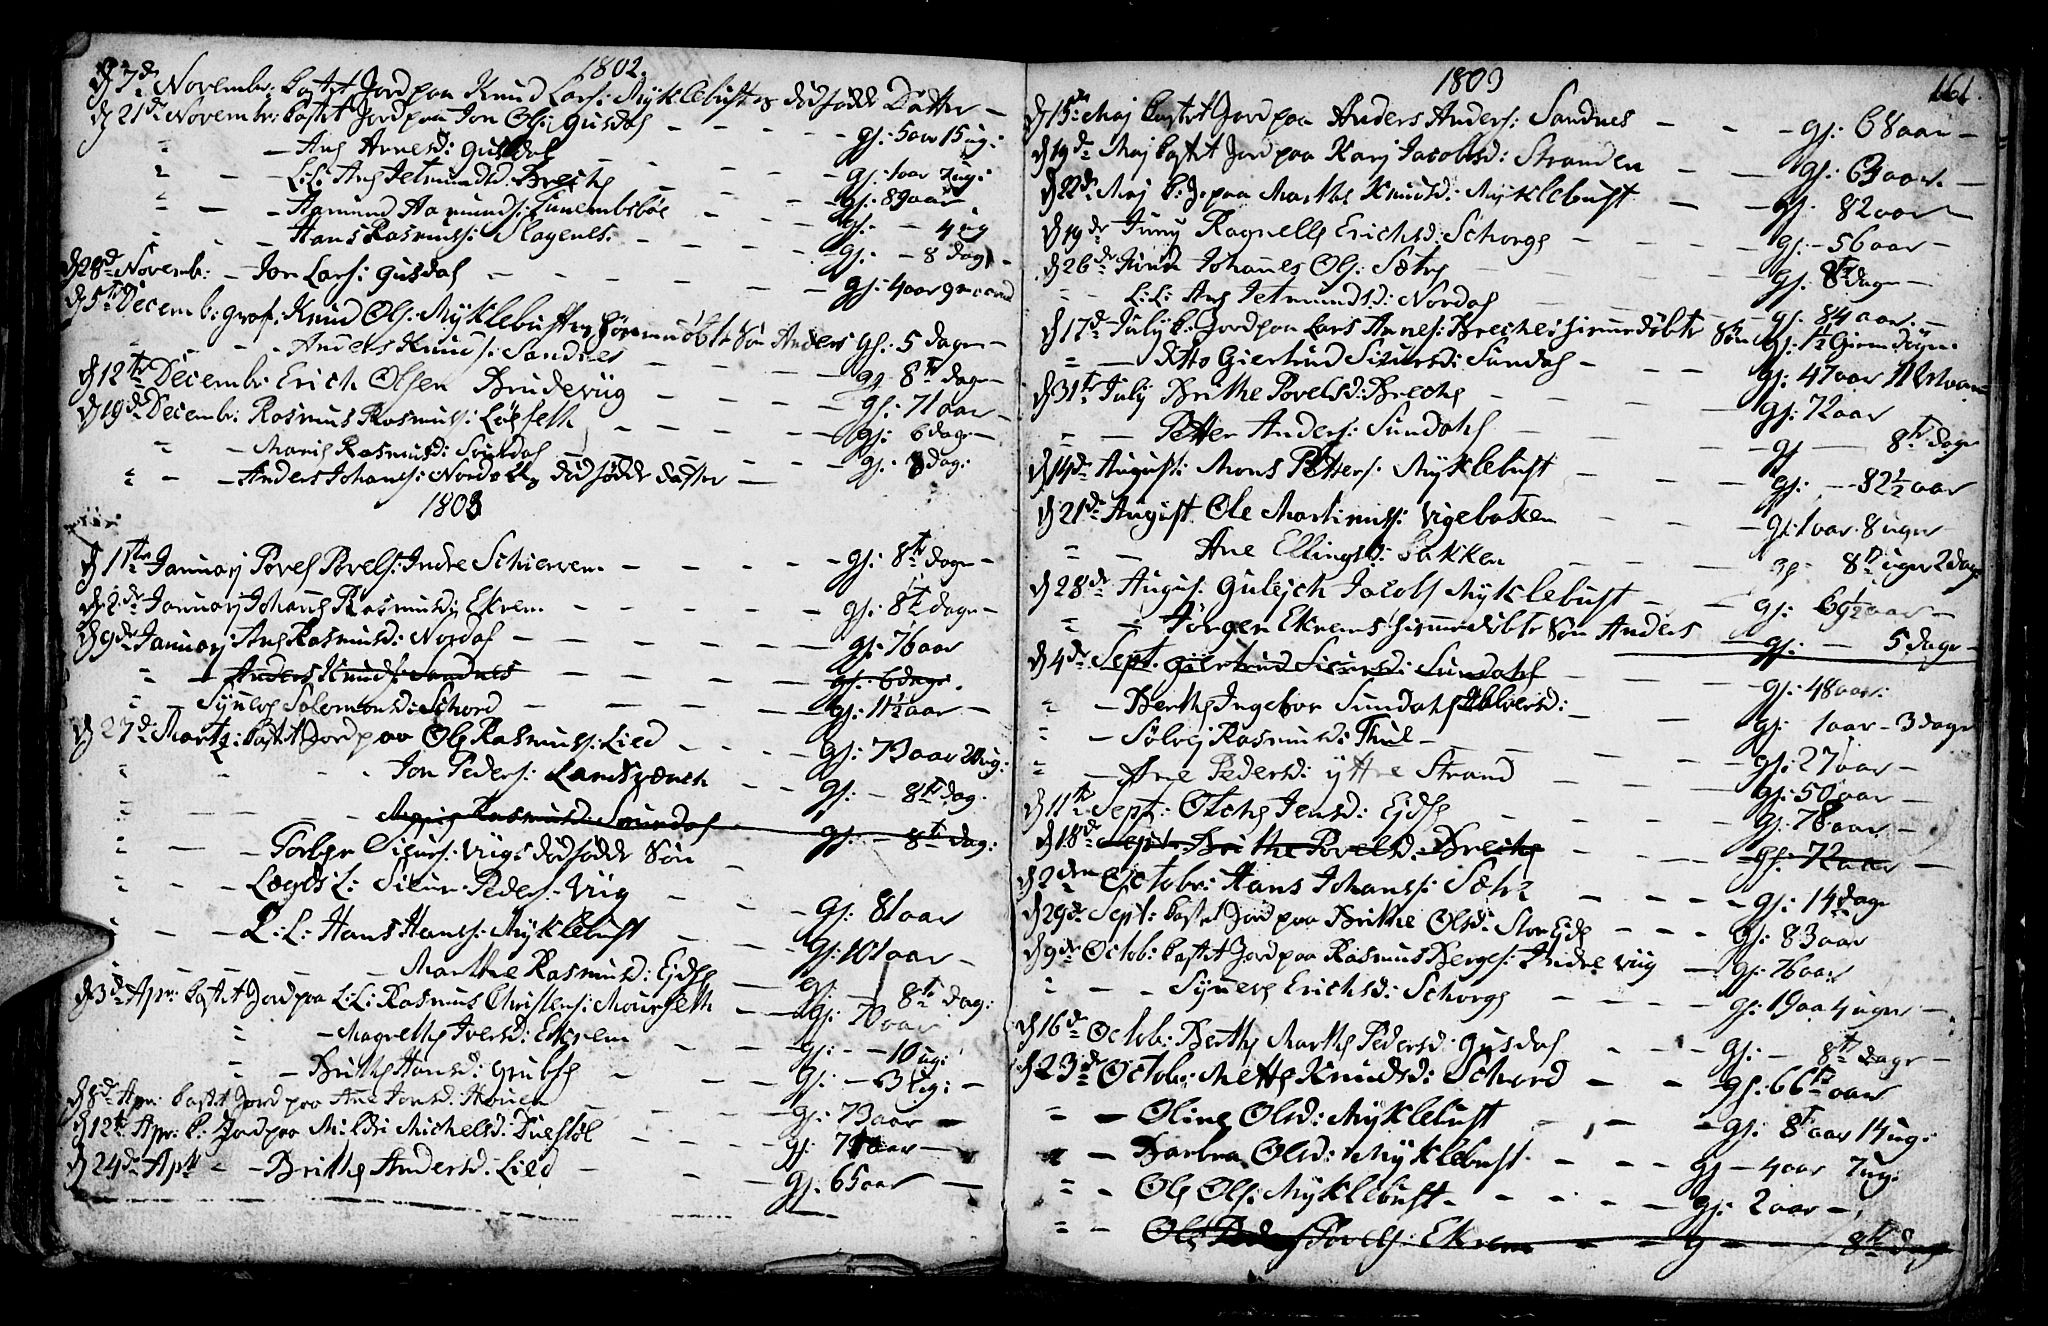 1802.
d 7de Novembr: kastet Jord paa Knud Lars: Myklebusts dødfødde Datter —
d 21de Novembr: kastet Jord paa Jon Ols: Gusdal — gl: 5 aar 15 ug:
" — Ane Arnesd: Gusdal — gl: 1 aar ug:
" — L:L: Ane Jetmundsd: Breche — gl: 89 aar
" — Aamund Aamunds: — gl: — 4 ug
" — Hans Rasmuss: Slagenes — gl: — 8 dag: —
d 28de Novemb: — Jon Lars: Gusdal — gl: 4 aar 9 maaned
d 5te Decemb: graf: Knud Ols: Myklebusts hiemmedøbte Søn Anders gl: 5 dage —
" — Anders Knuds: Sandnes — gl: 8te dage —
d 12te Decemb: Erich Olsen Brudeviig — gl: 71 aar —
d 19de Decembr: Rasmus Rasmuss: Løfseth — gl: 6 dage —
" — Marie Rasmusd: Sundal — gl: 8 dag:
" — Anders Johans: Nordals dødfødde datter —
1803
d 1ste Januarj Povel Povels: Indre Schierven — gl: 8te dage —
d 2de Januarj Johane Rasmusd: Ekrem — gl: 8te dage —
d 9de Januarj Ane Rasmusd: Nordal — gl: 76 aar
" — Anders Knuds: Sandnes — gl: 6 dage.
" — Synneve Salamonsd: Schord — gl: 11½ aar —
d 27de Martz: kastet Jord paa Ole Rasmuss: Lied — gl: 73 aar 20 ug:
" — Jon Peders: — gl: — 8te dag:
" — Rasmusd: Sundal — gl: — 8te dag:
" — Torber Siurs: Viigs dødfødde Søn —
" — Lægds L: Siur Peders: Viig — gl: 81 aar
" — L:L: Hans Hans: Myklebust — gl: 101 aar —
" — Marthe Rasmusd: Ejde — gl: — 8te dag:
d 3de Apr: kastet Jord paa L:L: Rasmus Christens: — gl: 70 aar
" — Magrethe Iversd: Ekrem — gl: — 10 ug:
" — Brithe Hansd: Grubse — gl: — 63 ug: —
d 8de Apr: kastet Jord paa Ane Jonsd: Houen — gl: 73 aar —
d 12te Apr: k: Jord paa Mildri Michelsd: — gl: aar —
d 24de Apr — Brithe Andersd: Lied — gl: 65 aar —
1803
161.
d 15de Maj kastet Jord paa Anders Anders: Sandnes — gl: 68 aar —
d 19de Maj kastet Jord paa Karj Jacobsd: Stranden — gl: 64 aar. —
d 22de Maj k: J: paa Marthe Knudsd: Myklebust — gl: 82 aar —
d 19de Junj Ragnelle Erichsd: Schorge — gl: — 56 aar —
d 26de Junj Johanes Ols: Sætre — gl: 8te dage —
" — L:L: Ane Jetmundsd: Nordal — gl: 84 aar. —
d 17de Julj k: Jord paa Lars Arnes: Breches hiemedøbte Søn gl: 1½
" — ditto Giertrud Siursd: Sundal — gl: 47 aar
d 31te Julj Brithe Povelsd: Breche — gl: 72 aar
" — Petter Anders: Sundal — gl — 8te dage
d 14de August: Mons Petters: Myklebust — gl: — 82½ aar
d 21de August Ole Martinus: Vigebakken — gl: 1 aar 8 uger
" — Ane Ellingsd: Bakken — gl: 8te uger 2 dage
d 28de Augus: Guleich Jacobs Myklebust — gl: 69½ aar —
" — Jørgen Ekrems hiemmedøbte Søn Anders — gl: — 5 dage —
d 4de Sept. Giertrud Siursd: Sundal — gl: 48 aar:
" — Berthe Ingebor Sundal Halversd: — gl: 1 aar — 3 dage
" — Sølvej Rasmusd: Thue — gl: 27 aar —
" — Ane Pedersd: yttre Strand — gl: 50 aar —
d 11te Sept: Oliche Jensd: Ejde — gl: 78 aar —
d 18de Sept: Brithe Povelsd: Breche — gl: 72 aar —
d 2den Octobr: Hans Johans: Sætre — gl: 14 dage
d 29de Sept: kastet Jord paa Brithe Olsd: Stor Ejde — gl: 83 aar
d 9de Octob: kastet Jord paa Rasmus Berges: Indre Viig — gl: 76 aar
" — Synneve Erichsd: Schorge — gl: 19 aar 4 uger —
d 16de Octob: Berthe Marthe Pedersd: Gusdal — gl: — 8te dage —
d 23de Octob: Mette Knudsd: Schord — gl: 66 aar
" — Oline Olsd: Myklebust — gl: 8te aar 14 ug:
" — Barbra Olsd: Myklebust — gl — 4 aar 7 ug:
" — Ole Ols: Myklebust — gl: 2 aar —
" — Ole Povels: Ekrem — g — 8te dage